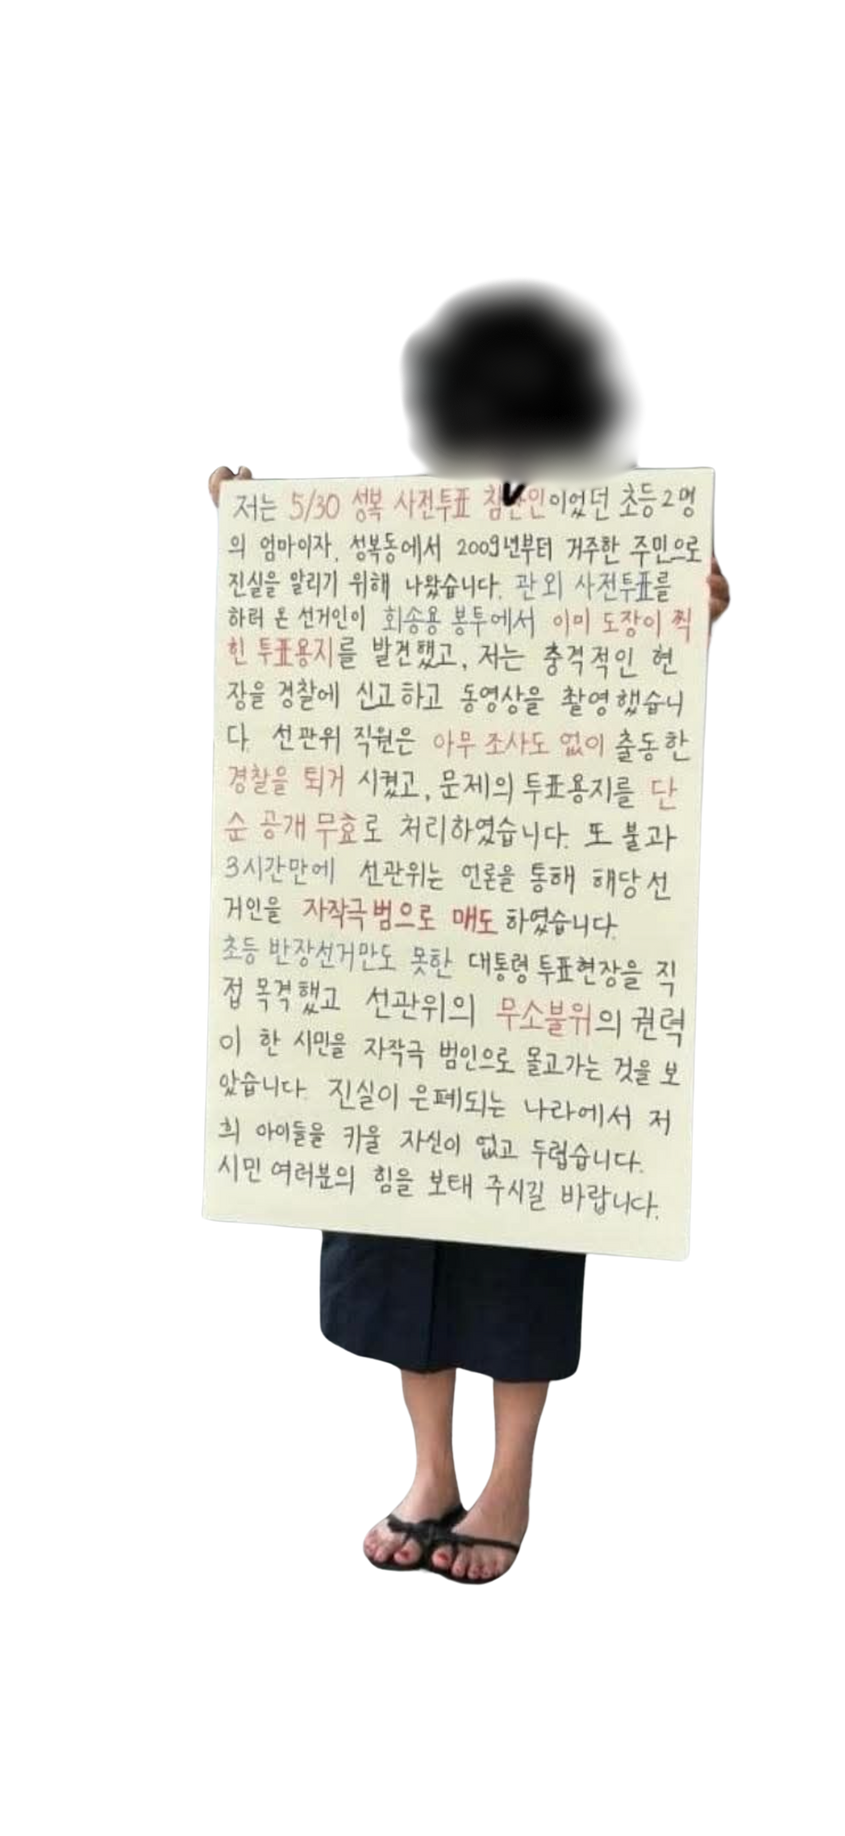 저는 5/30 성복 사전투표 참관인이었던 초등2명
의 엄마이자, 성복동에서 2009년부터 거주한 주민으로
진실을 알리기 위해 나왔습니다. 관외 사전투표를
하러 온 선거인이 회송용 봉투에서 이미 도장이 찍
힌 투표용지를 발견했고, 저는 충격적인 현
장을 경찰에 신고하고 동영상을 촬영했습니
다. 선관위 직원은 아무 조사도 없이 출동한
경찰을 퇴거 시켰고, 문제의 투표용지를 단
순 공개 무효로 처리하였습니다. 또 불과
3시간만에 선관위는 언론을 통해 해당 선
거인을 자작극범으로 매도 하였습니다.
초등 반장선거만도 못한 대통령 투표현장을 직
접 목격했고 선관위의 무소불위의 권력
이 한 시민을 자작극 범인으로 몰고가는 것을 보
았습니다. 진실이 은폐되는 나라에서 저
희 아이들을 키울 자신이 없고 두렵습니다.
시민 여러분의 힘을 보태 주시길 바랍니다.